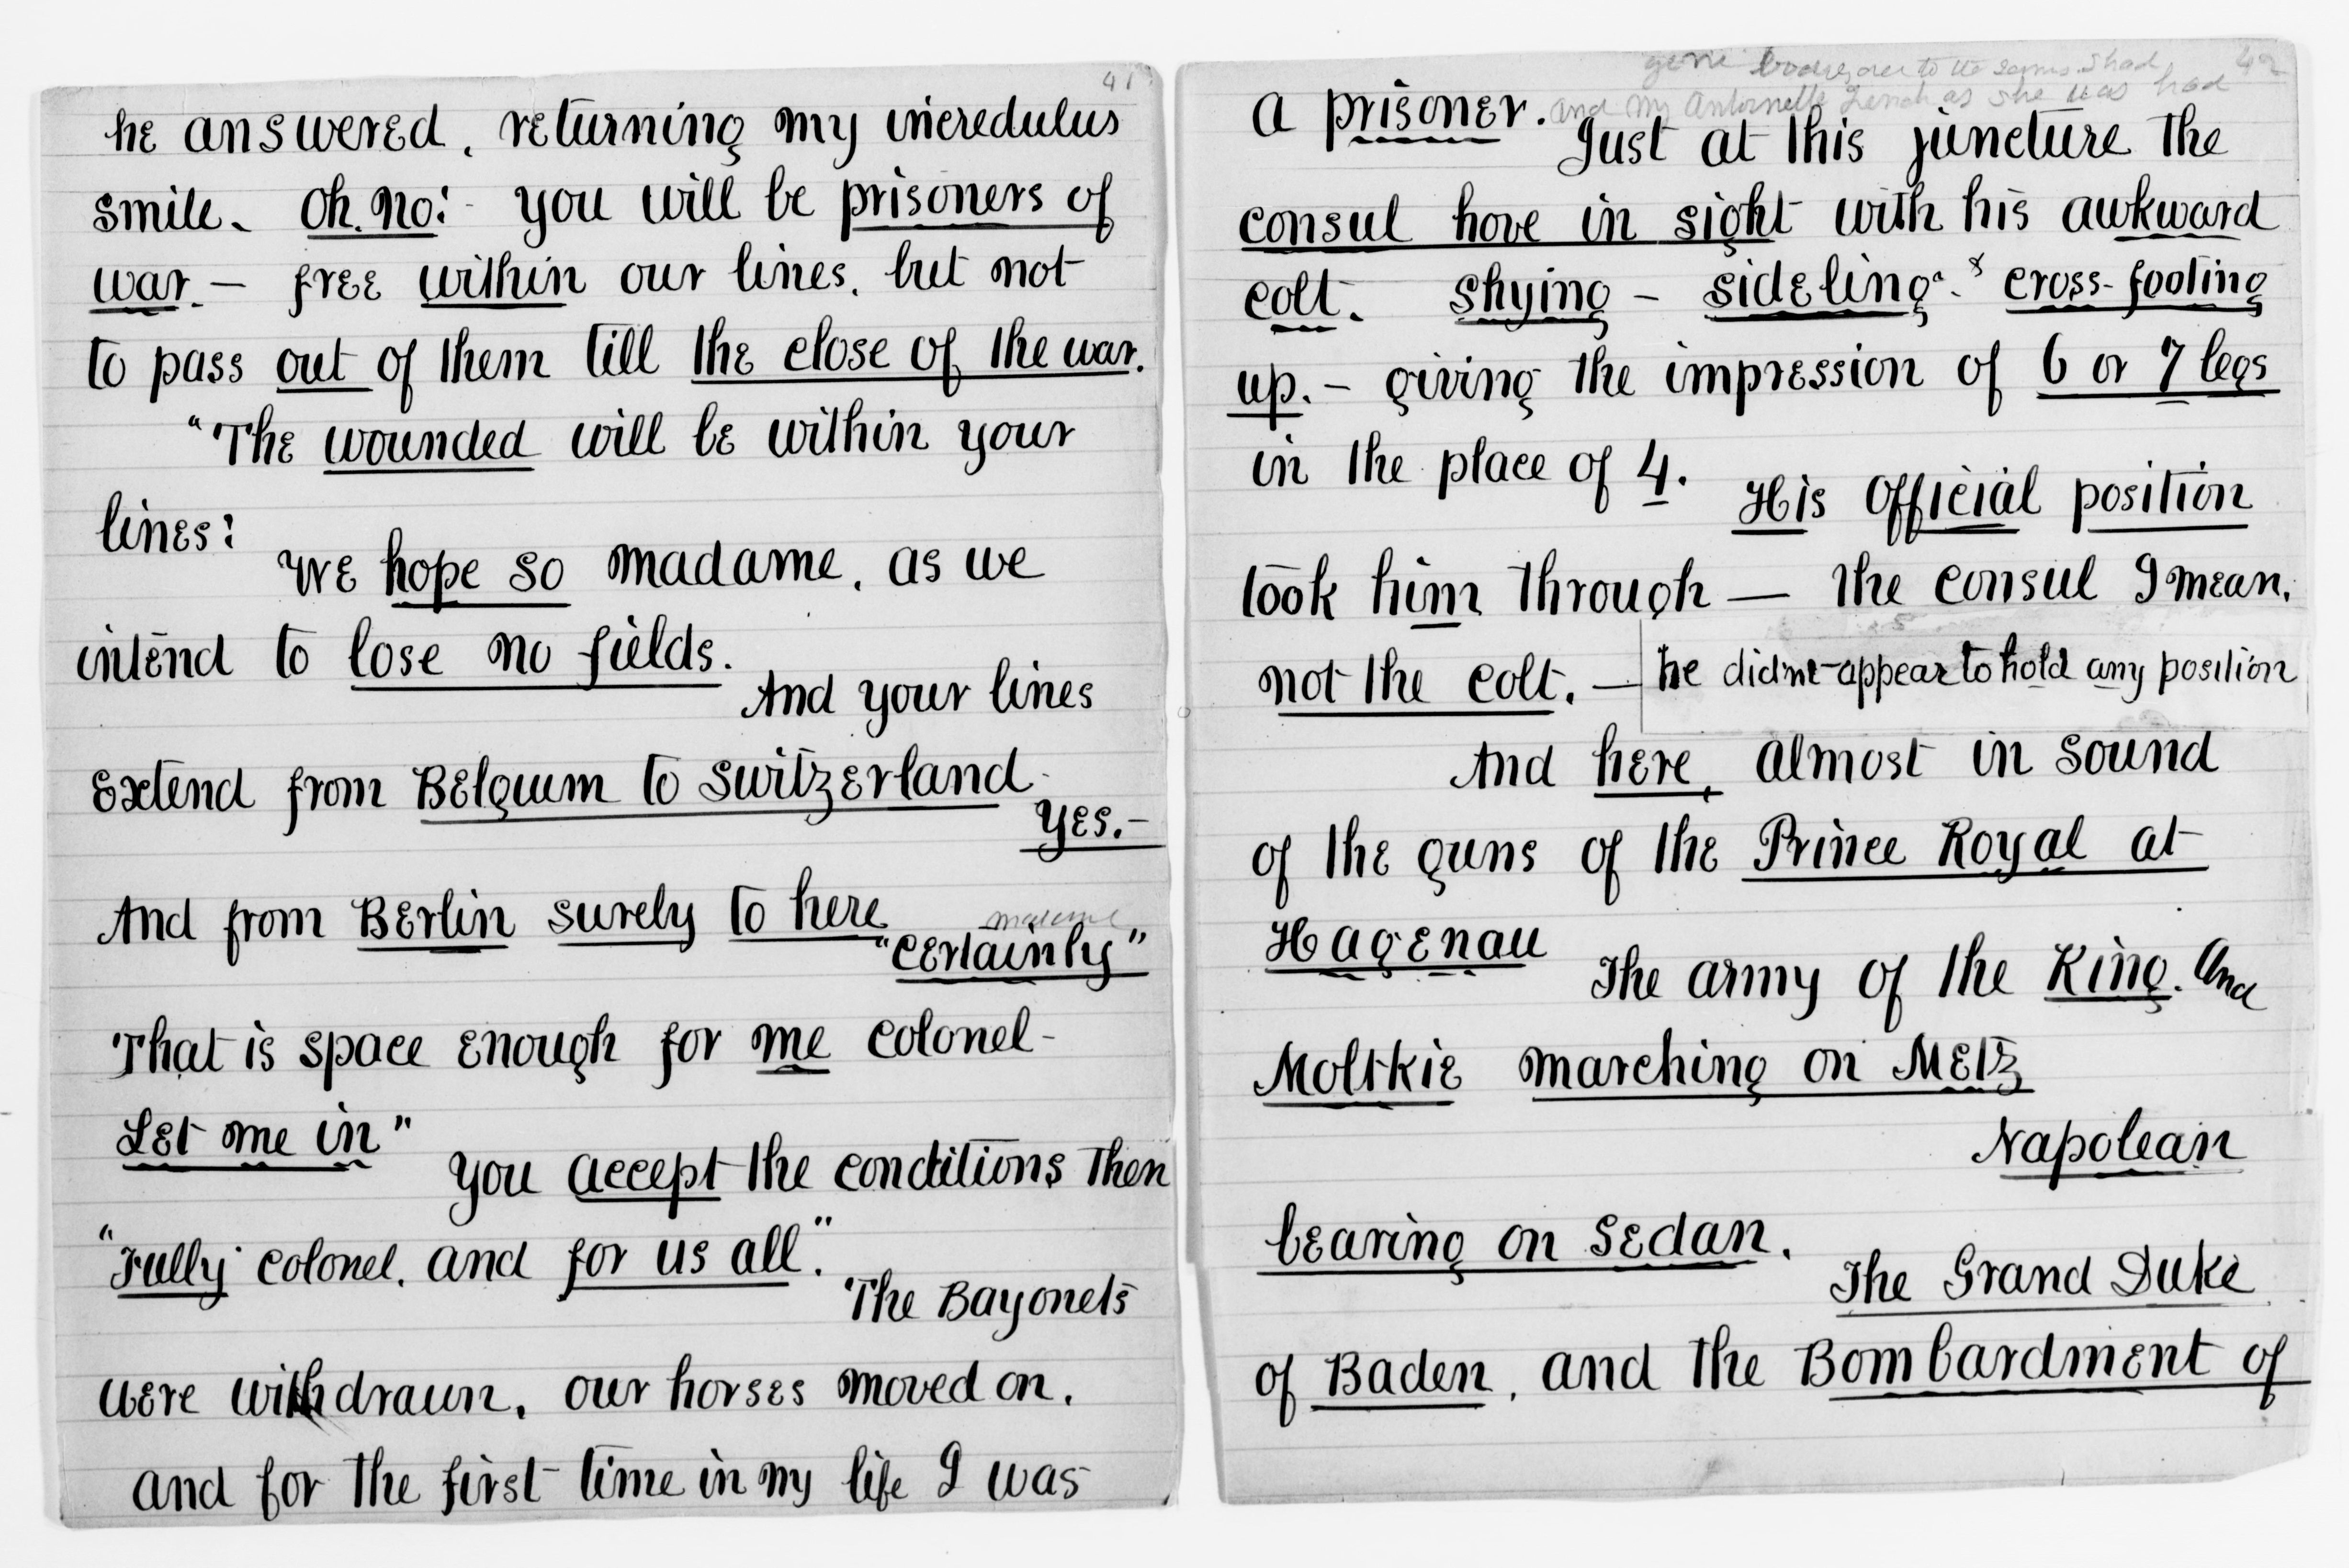 41
he answered, returning my incredulus
smile. Oh. No! - you will be prisoners of
war. — free within our lines, but not
to pass out of them till the close of the war.
"The wounded will be within your
lines?
We hope so madame, as we
intend to lose no fields.
And your lines
extend from Belguim to Switzerland.
Yes. -
And from Berlin surely to here
madame
"Certainly"
That is space enough for me Colonel -
Let me in"
You accept the conditions then
"Fully Colonel, and for us all."
The Bayonets
were withdrawn, our horses moved on,
and for the first time in my life I was
42
to the same I had
and my Antoinette as she was had
a prisoner.
Just at this juncture the
consul hove in sight with his awkward
colt. Shying - sideling - & cross-footing
up. - giving the impression of 6 or 7 legs
in the place of 4.
His Official position
took him through — the consul I mean,
not the colt. — he didnt appear to hold any position
And here, almost in sound
of the guns of the Prince Royal at
Hagenau
The army of the King. And
Moltkie marching on Metz
Napolean
bearing on Sedan.
The Grand Duke
of Baden, and the Bombardment of